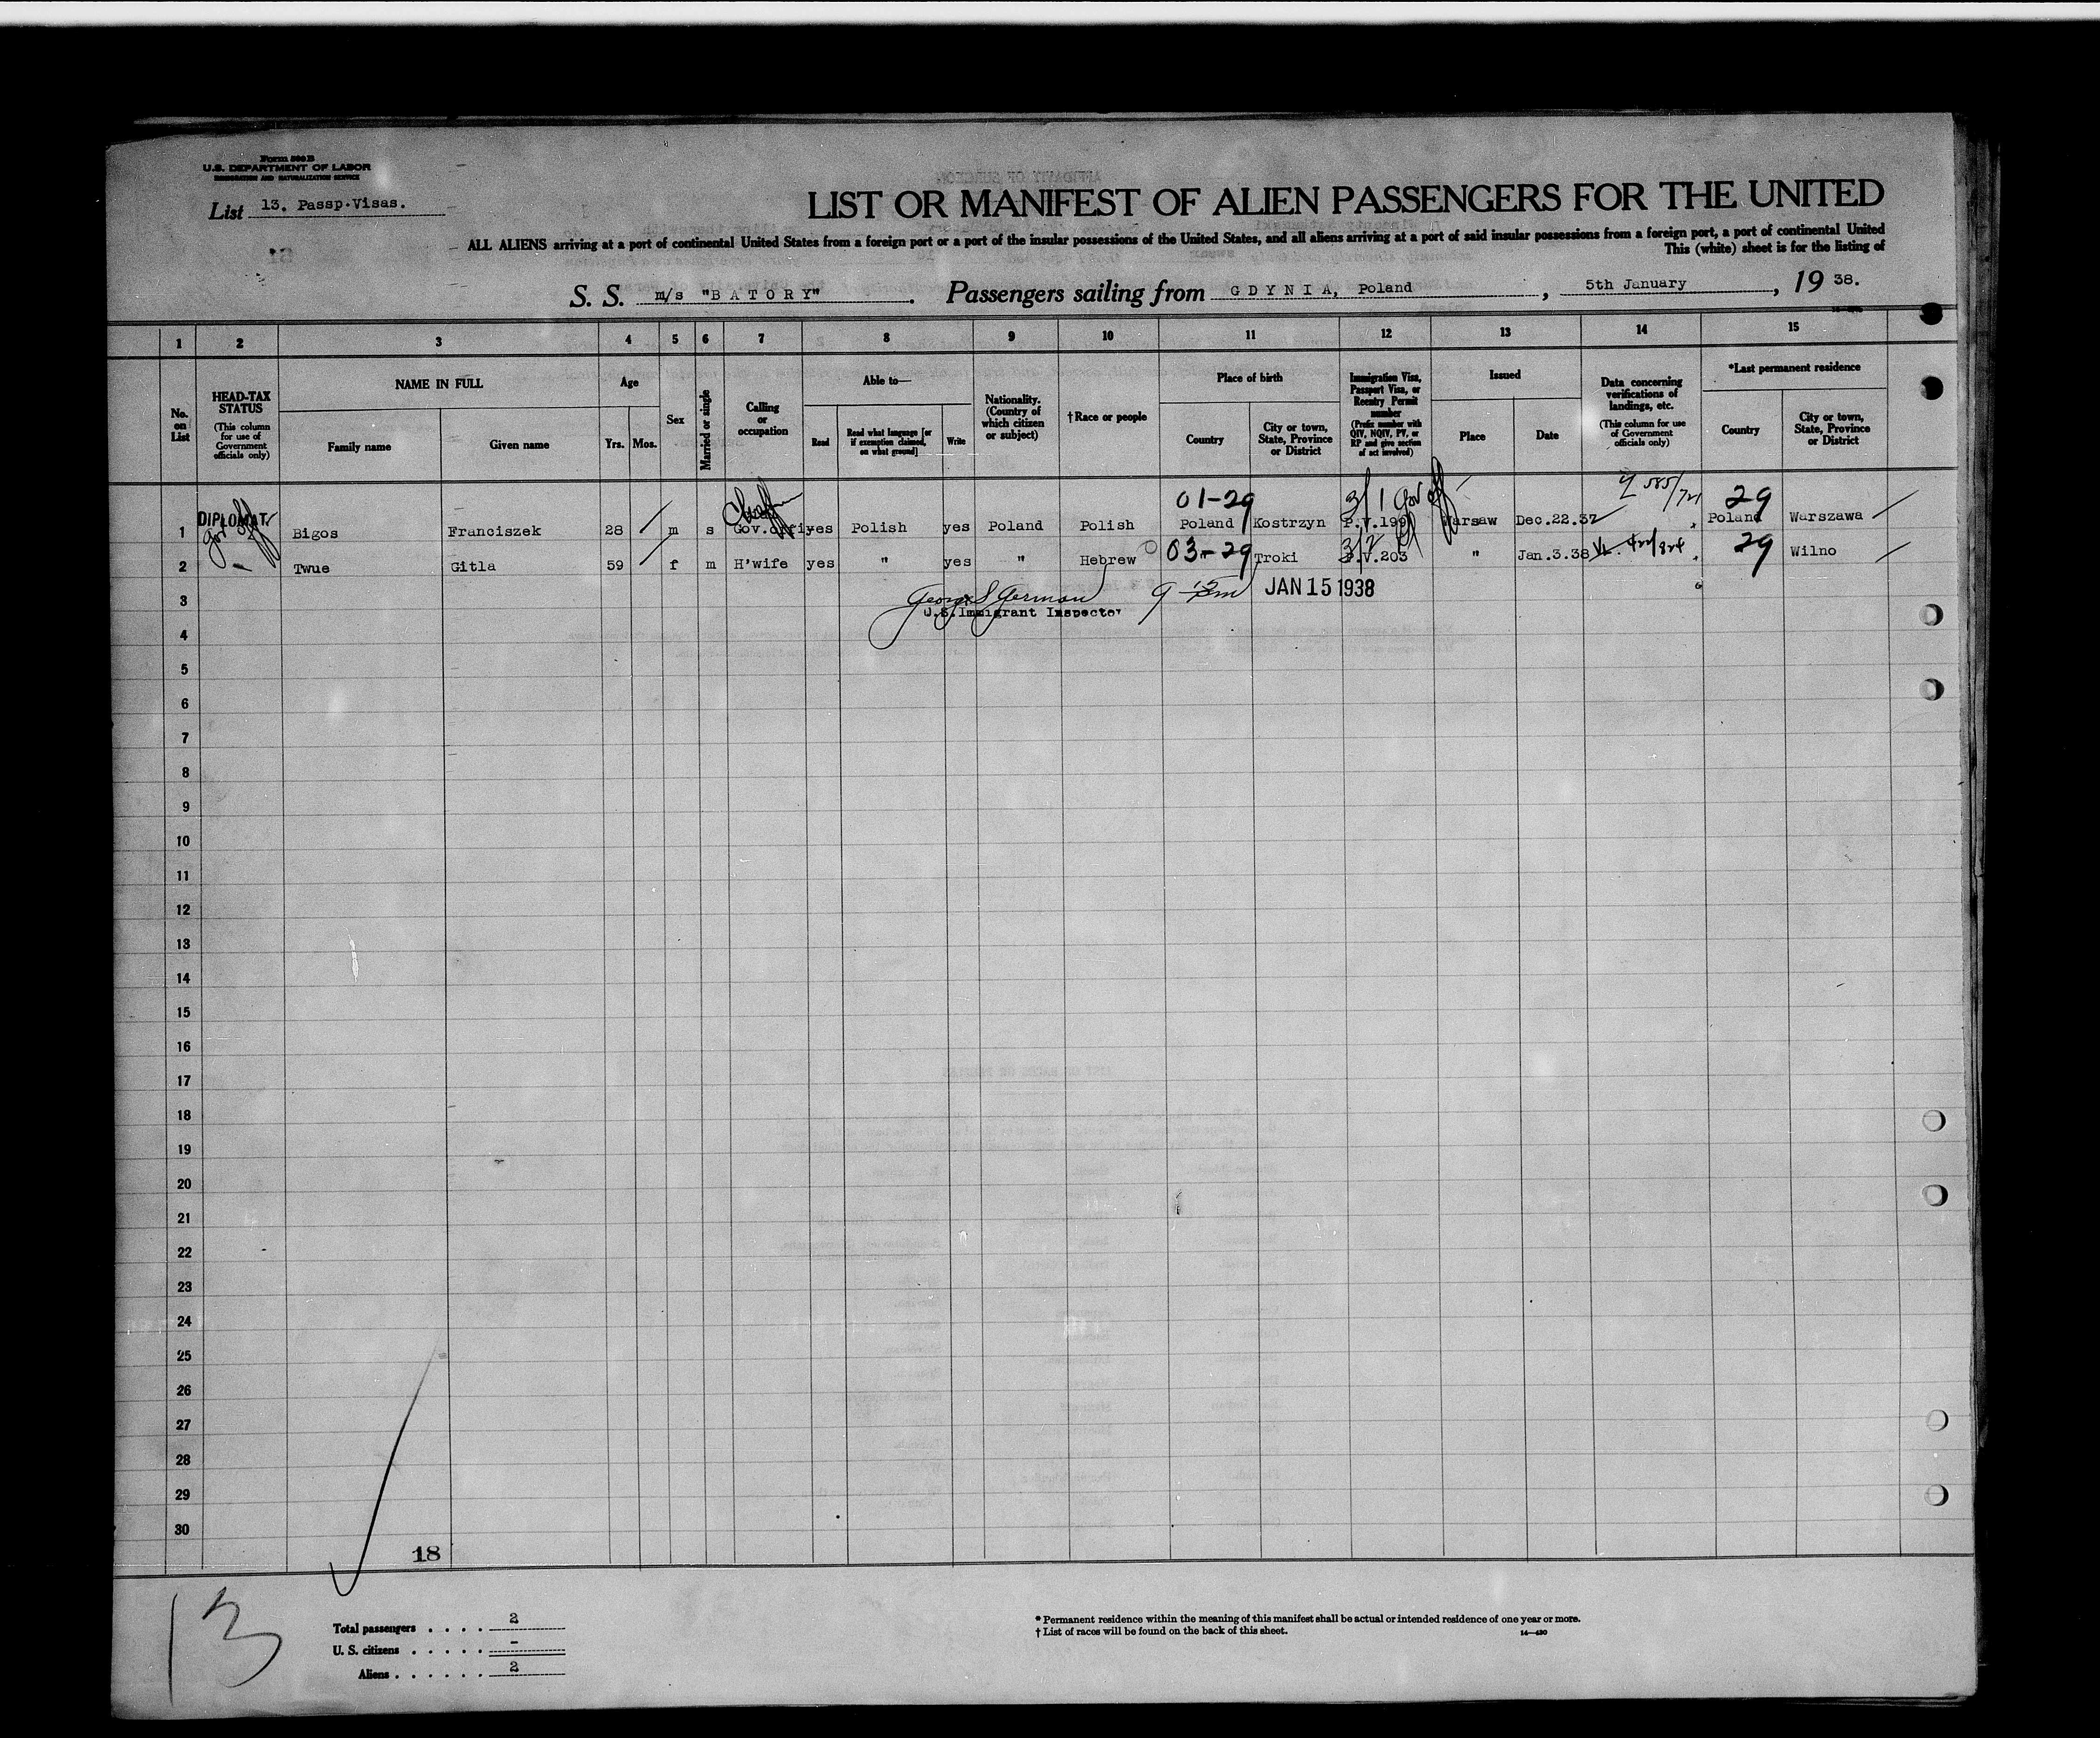 Form 500 B
U.S. DEPARTMENT OF LABOR
IMMIGRATION AND NATURALIZATION SERVICE
List 13. Passp.Visas.
LIST OR MANIFEST OF ALIEN PASSENGERS FOR THE UNITED
ALL ALIENS arriving at a port of continental United States from a foreign port or a port of the insular possessions of the United States, and all aliens arriving at a port of said insular possessions from a foreign port, a port of continental United
This (white) sheet is for the listing of
S. S. m/s "BATORY" . Passengers sailing from GDYNIA, Poland , 5th January , 19 38.
1 2 3 4 5 6 7 8 9 10 11 12 13 14 15
No. on List
HEAD-TAX STATUS (This column for use of Government officials only)
NAME IN FULL
Family name
Given name
Age
Yrs. Mos.
Sex
Married or single
Calling or occupation
Able to—
Read
Read what language [or if exemption claimed, on what ground]
Write
Nationality. (Country of which citizen or subject)
†Race or people
Place of birth
Country
City or town, State, Province or District
Immigration Visa, Passport Visa, or Reentry Permit number (Prefix number with QIV, NQIV, PV, or RP and give section of act involved)
Issued
Place
Date
Data concerning verifications of landings, etc. (This column for use of Government officials only)
*Last permanent residence
Country
City or town, State, Province or District
01-29 3/1 Gov off 29
1 DIPLOMAT. Gov off Bigos Franciszek 28 m s Gov.offi yes Polish yes Poland Polish Poland Kostrzyn P.V.199 Warsaw Dec.22.37 Poland Warszawa
2 Twue Gitla 59 f m H'wife yes " yes " Hebrew 03-29 Troki 3/2 P.V.203 " Jan.3.38 29 Wilno
3 George S German JAN 15 1938
U.S. Immigrant Inspector
4
5
6
7
8
9
10
11
12
13
14
15
16
17
18
19
20
21
22
23
24
25
26
27
28
29
30
18
13
Total passengers . . . . 2
U. S. citizens . . . . . -
Aliens . . . . . . 2
* Permanent residence within the meaning of this manifest shall be actual or intended residence of one year or more.
† List of races will be found on the back of this sheet.
14—430